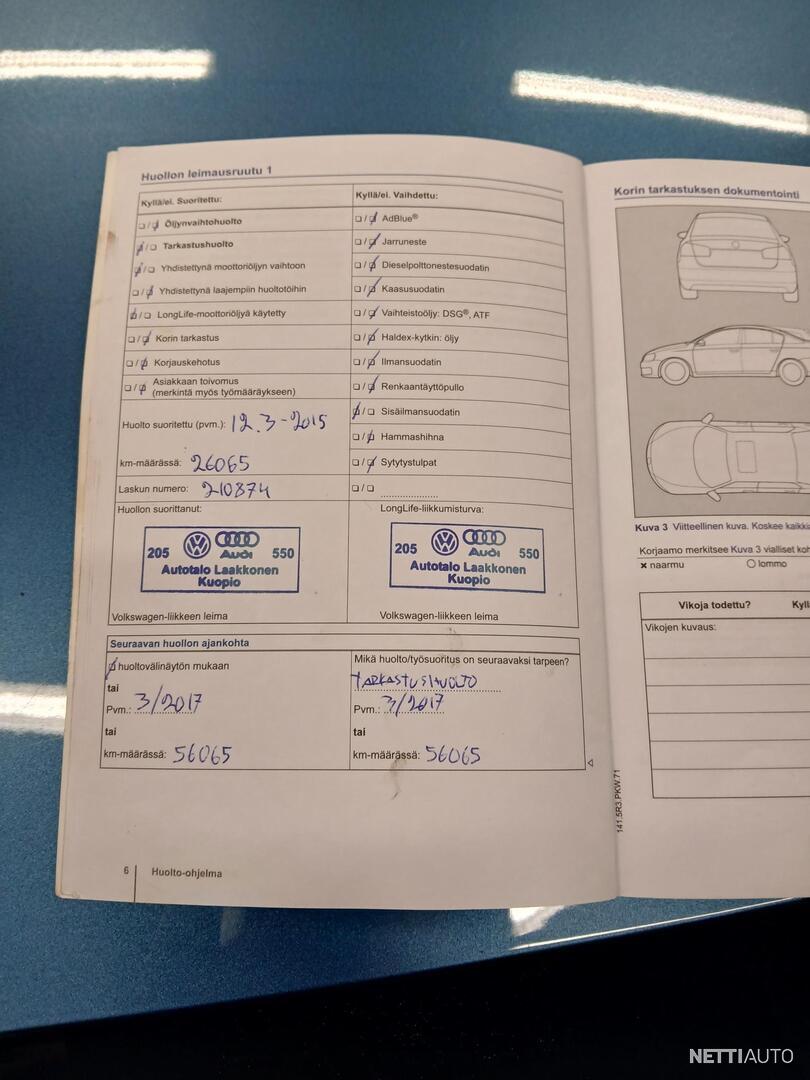 Huollon leimausruutu 1
Kyllä/ei. Suoritettu:
☐/☑ Öljynvaihtohuolto
☑/☐ Tarkastushuolto
☑/☐ Yhdistettynä moottoriöljyn vaihtoon
☐/☑ Yhdistettynä laajempiin huoltotöihin
☑/☐ LongLife-moottoriöljyä käytetty
☐/☑ Korin tarkastus
☐/☑ Korjauskehotus
☐/☑ Asiakkaan toivomus
(merkintä myös työmääräykseen)
Huolto suoritettu (pvm.): 12.3-2015
km-määrässä: 26065
Laskun numero: 210874
Huollon suorittanut:
205 Audi 550
Autotalo Laakkonen
Kuopio
Volkswagen-liikkeen leima
Kyllä/ei. Vaihdettu:
☐/☑ AdBlue®
☐/☑ Jarruneste
☐/☑ Dieselpolttonestesuodatin
☐/☑ Kaasusuodatin
☐/☑ Vaihteistoöljy: DSG®, ATF
☐/☑ Haldex-kytkin: öljy
☐/☑ Ilmansuodatin
☐/☑ Renkaantäyttöpullo
☑/☐ Sisäilmansuodatin
☐/☑ Hammashihna
☐/☑ Sytytystulpat
☐/☐ ....................
LongLife-liikkumisturva:
205 Audi 550
Autotalo Laakkonen
Kuopio
Volkswagen-liikkeen leima
Seuraavan huollon ajankohta
☑ huoltovälinäytön mukaan
tai
Pvm.: 3/2017
tai
km-määrässä: 56065
Mikä huolto/työsuoritus on seuraavaksi tarpeen?
TARKASTUSHUOLTO
Pvm.: 3/2017
tai
km-määrässä: 56065
6 Huolto-ohjelma
Korin tarkastuksen dokumentointi
Kuva 3 Viitteellinen kuva. Koskee kaikkia
Korjaamo merkitsee Kuva 3 vialliset koh
× naarmu ○ lommo
Vikoja todettu? Kyll
Vikojen kuvaus:
141.5R3.PKW.71
NETTIAUTO